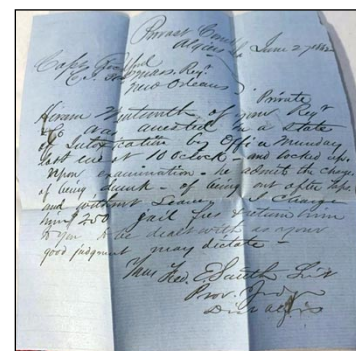 Provost Court
Algiers La June 2, 186
Capt
Co. Mass. Regt
New Orleans
Private
Hiram of your Regt
was arrested in a state
of Intoxication by Officer Munday
last eve at 10 Oclock - and locked up.
Upon examination - he admits the charge
of being drunk - of being out after taps
and without Leave, I Charge
him $2.00 jail fees & return him
to you to be dealt with as your
good judgment may dictate -
Fred. E. Smith
Prov. Judge